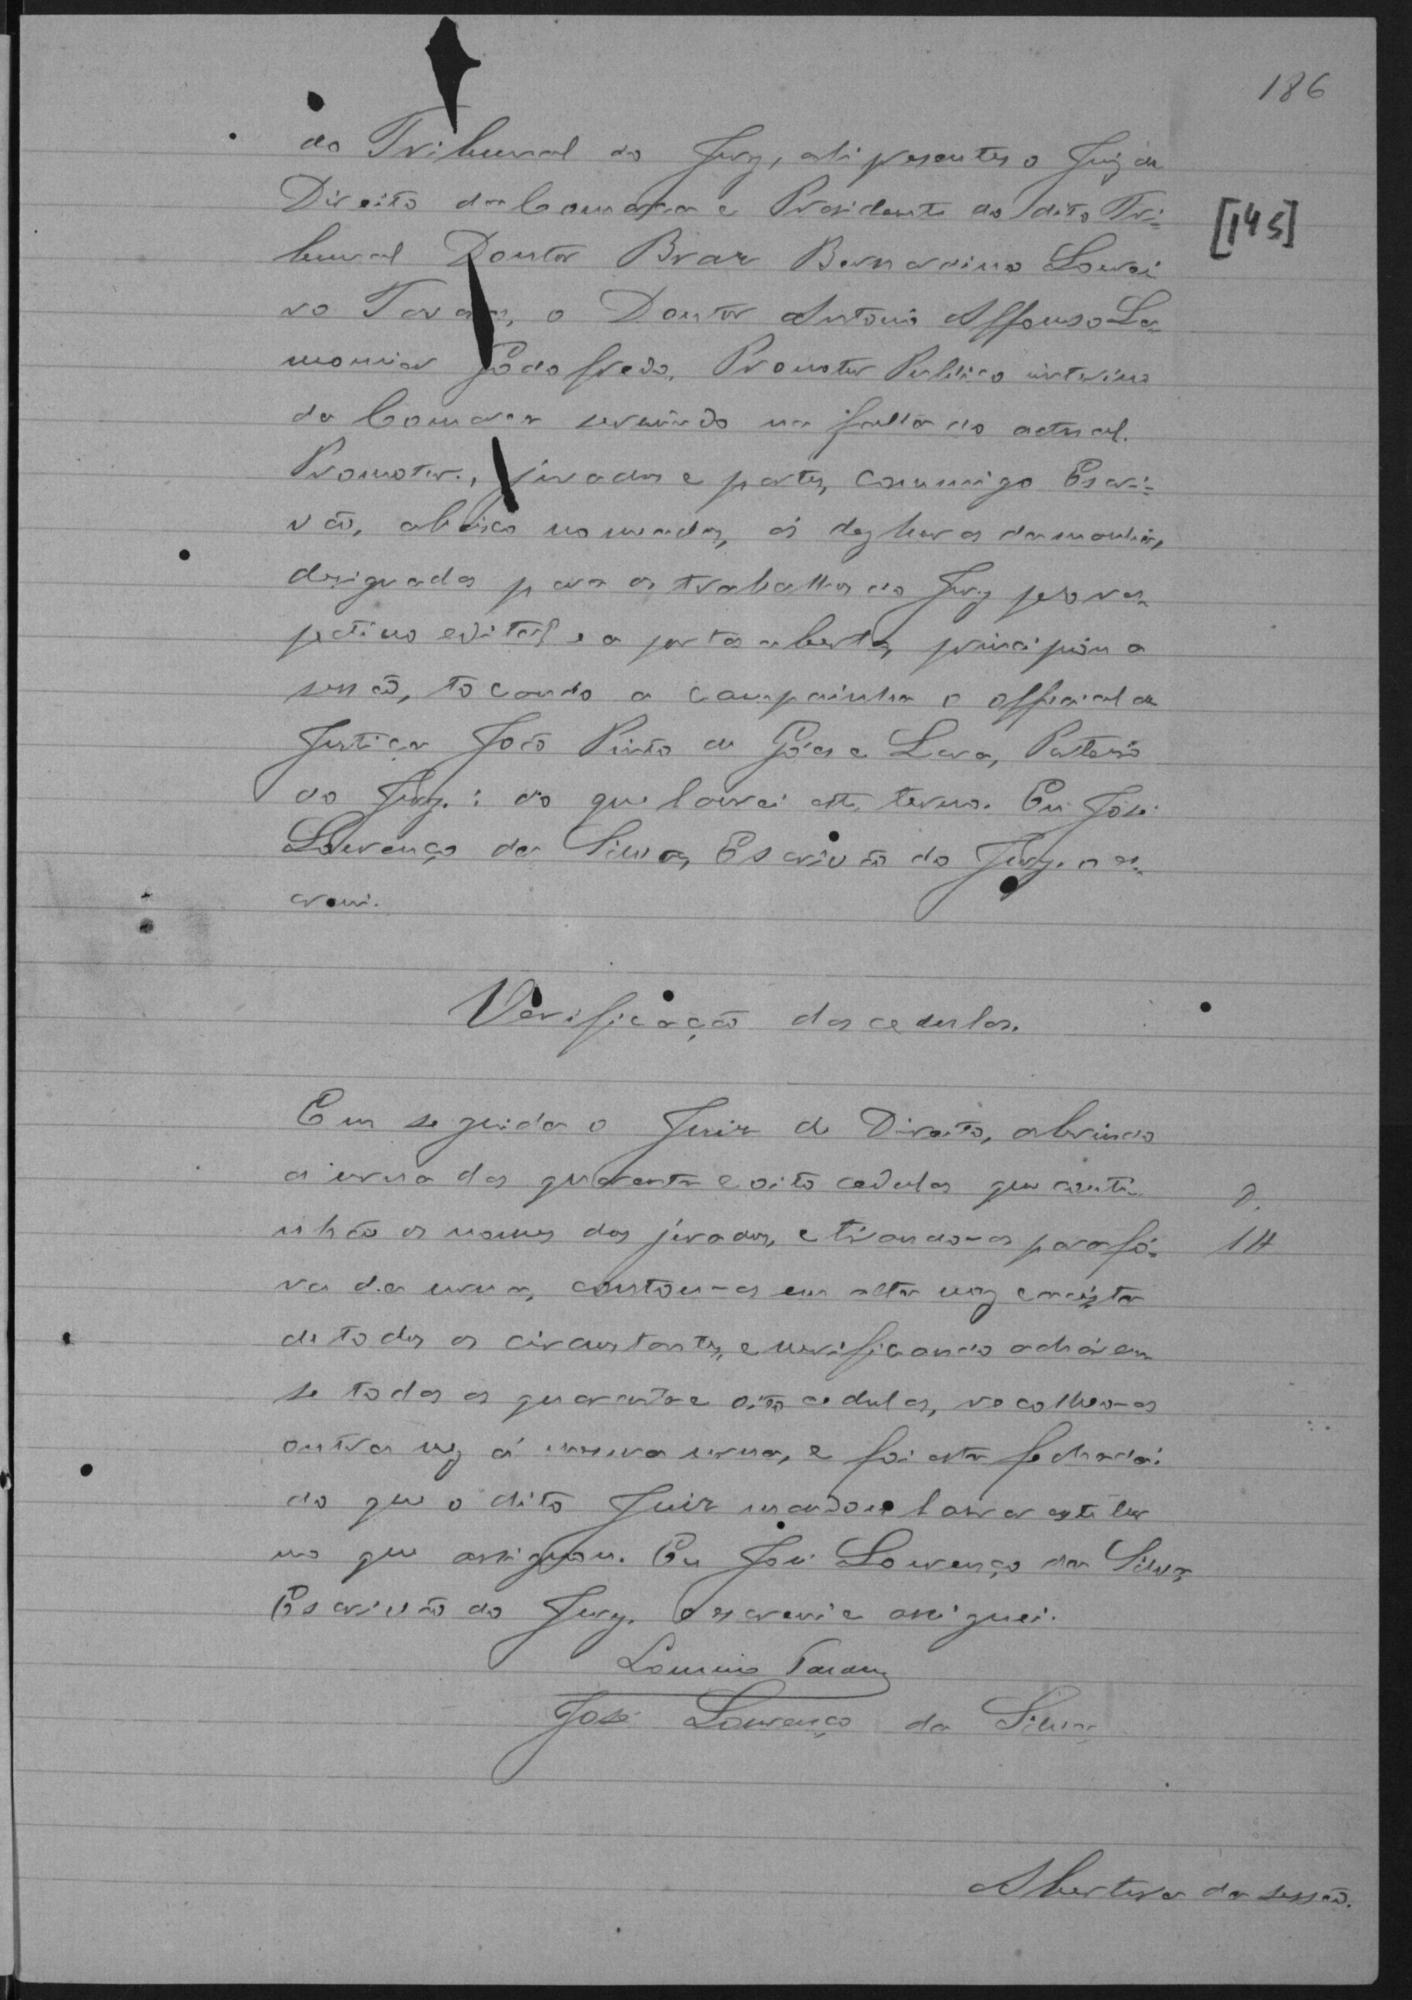 186
do Tribunal do Jury, ahi presentes o Juiz de
Direito da Comarca e Presidente do dito Tri-
[145]
bunal Doutor Braz Bernardino Lourei
ro Tavares, o Doutor Antonio Affonso La-
mounier Godofredo, Promotor Publico interino
da Comarca servindo na falta do actual
Promotor, jurados e partes, commigo Escri-
vão, abaixo nomeados, ás dez horas da manhã,
designadas para os trabalhos do Jury pelo res-
pectivo edital e a portas abertas, principiou a
sessão, tocando a campainha o official de
Justiça João Pinto de Góes e Lara, Porteiro
do Jury: do que lavrei este termo. Eu José
Lourenço da Silva, Escrivão do Jury, o es-
crevi.
Verificação das cedulas.
Em seguida o Juiz de Direito, abrindo
a urna das quarenta e oito cedulas que conti-
nhão os nomes dos jurados, e tirando-as para fó-
ra da urna, contou-as em alta voz e a vista
de todos os circustantes, e verificando acharem
se todas as quarenta e oito cedulas, recolheu-as
outra vez á mesma urna, e foi esta fechada:
do que o dito Juiz mandou lavrar este ter
mo que assignou. Eu José Lourenço da Silva,
Escrivão do Jury, o escrevi e assignei.
Loureiro Tavares
José Lourenço da Silva
Abertura da sessão.